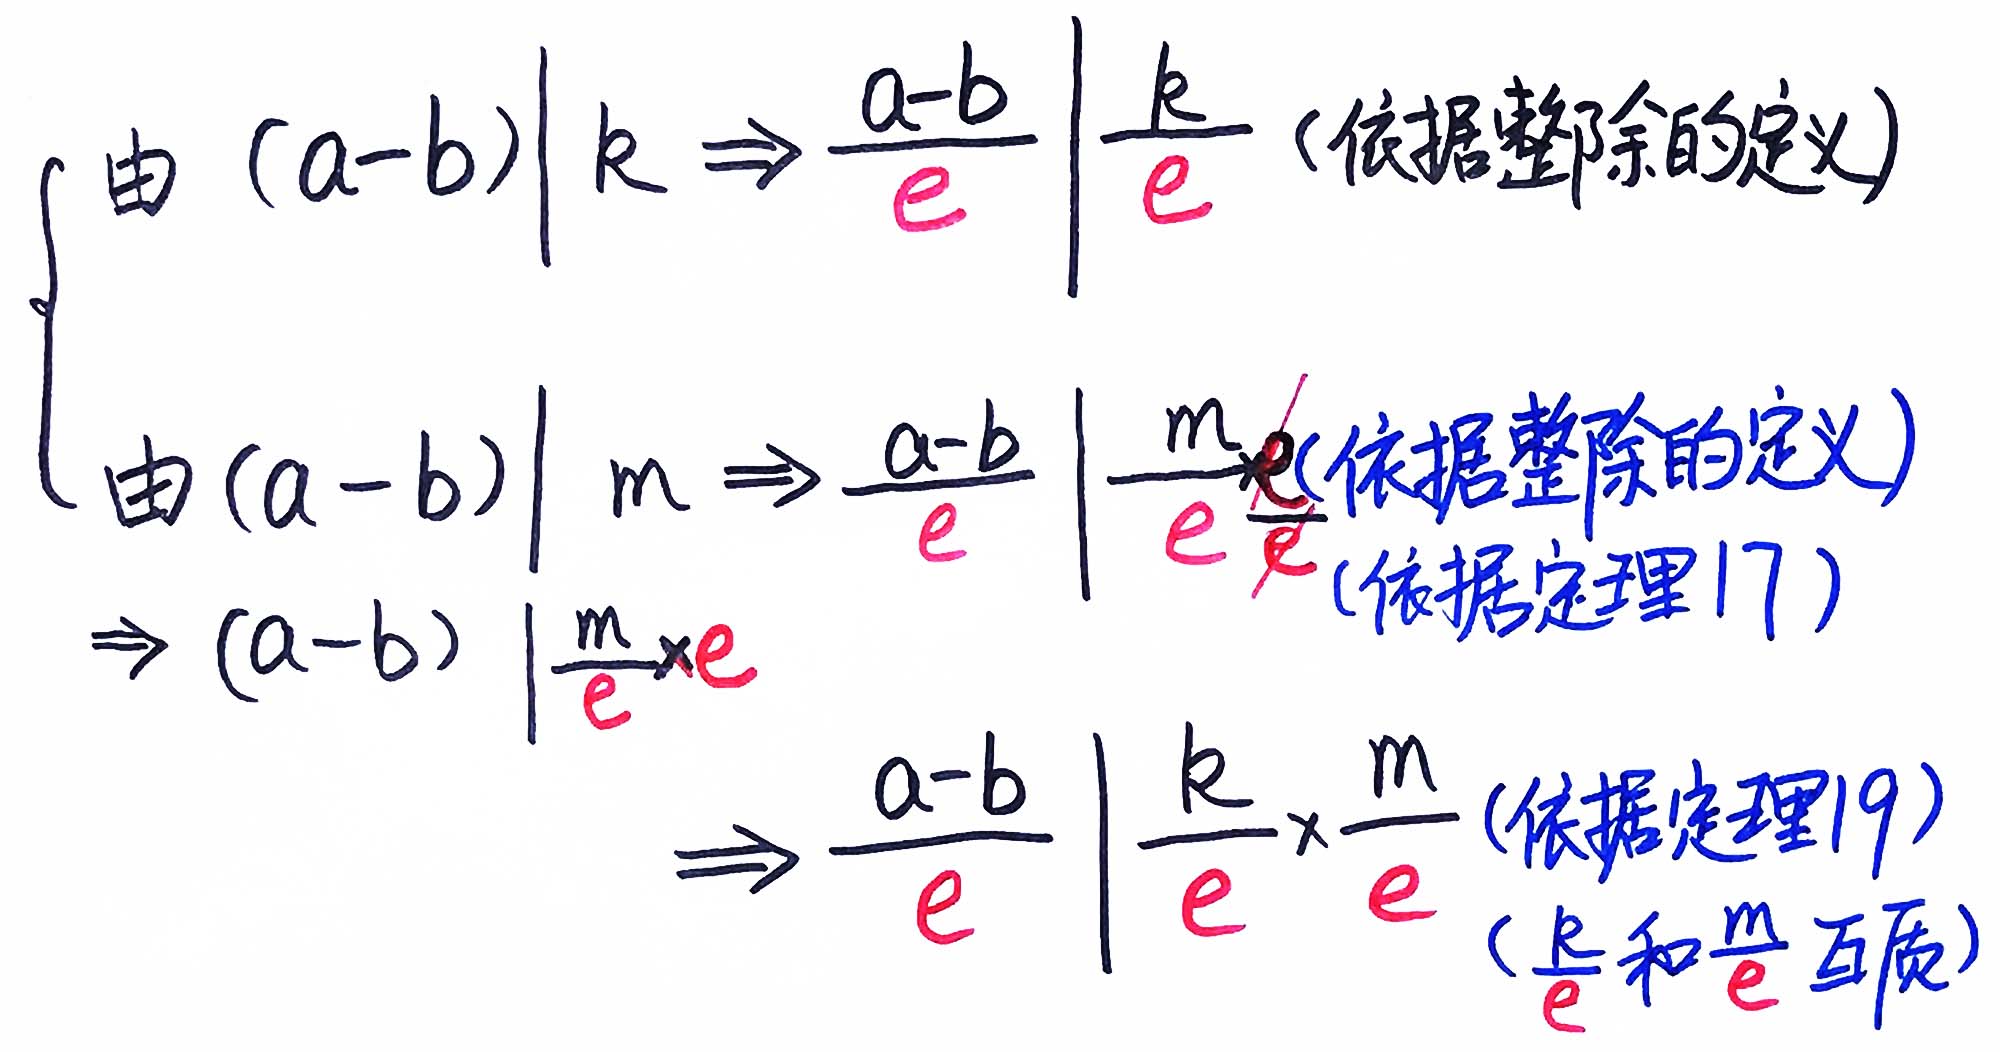 由 (a-b) | k ⇒ \frac{a-b}{e} | \frac{k}{e} (依据整除的定义)
由 (a-b) | m ⇒ \frac{a-b}{e} | \frac{m}{e} × \frac{e}{e} (依据整除的定义)
(依据定理17)
⇒ (a-b) | \frac{m}{e} × e
⇒ \frac{a-b}{e} | \frac{k}{e} × \frac{m}{e} (依据定理19)
(\frac{k}{e} 和 \frac{m}{e} 互质)